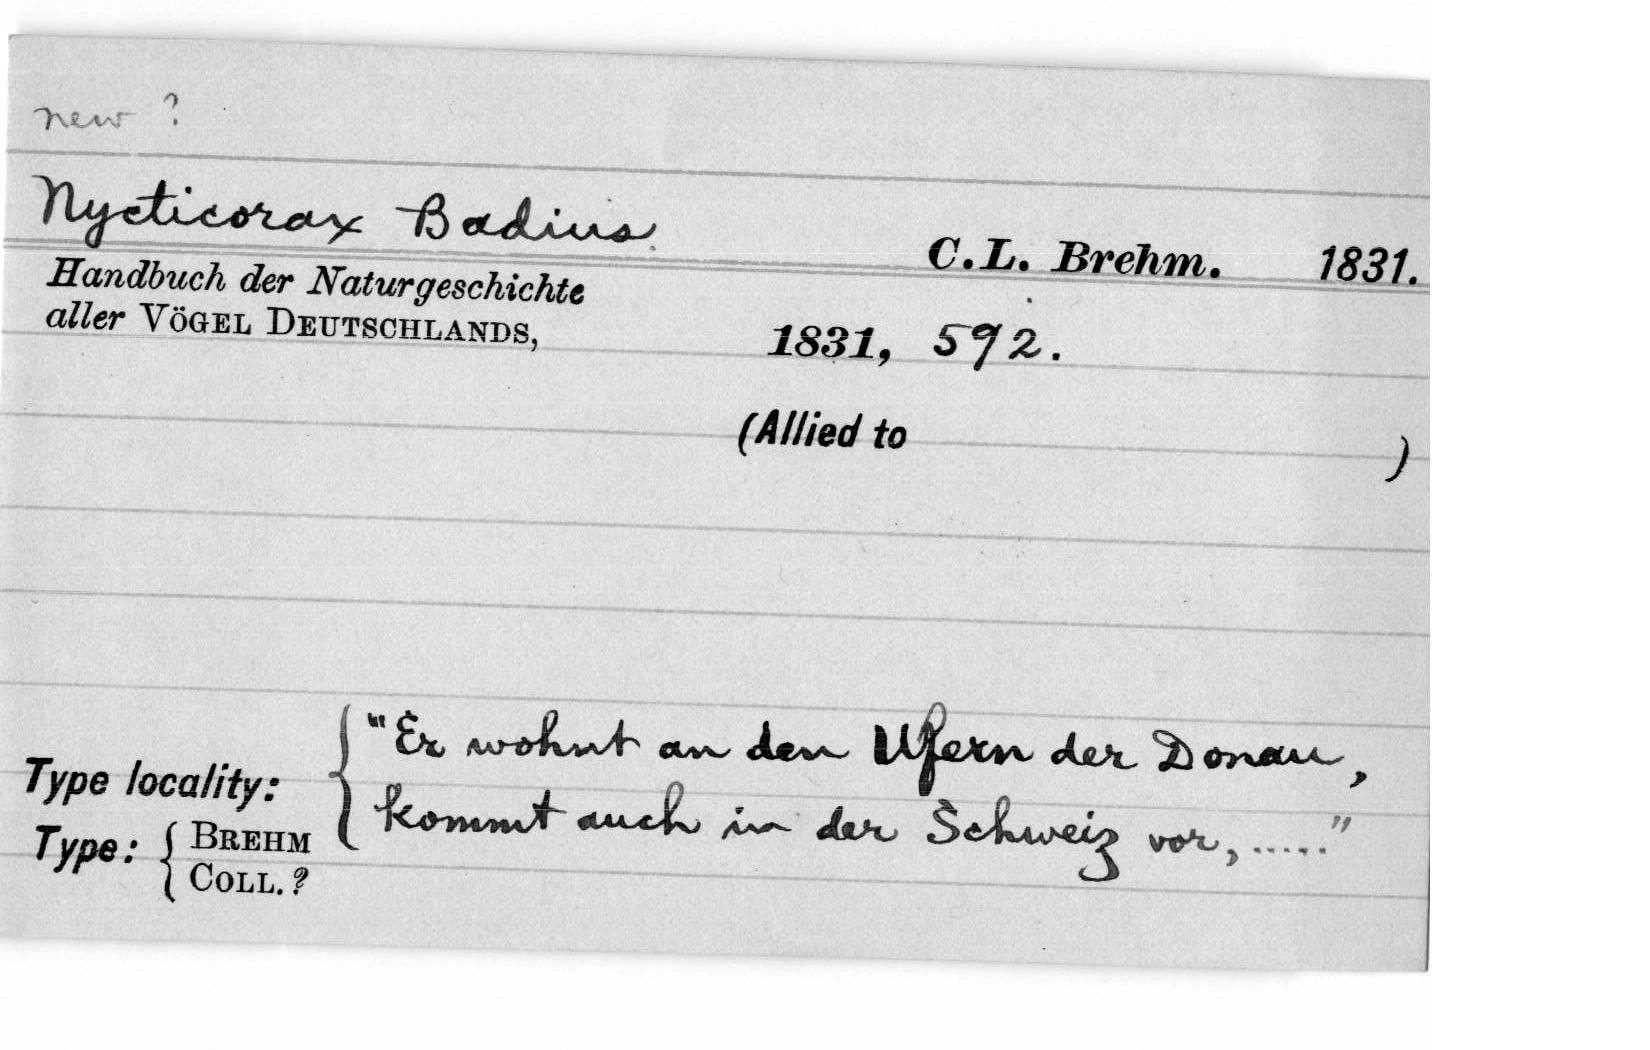 new ?
Nycticorax Badius. C.L. Brehm. 1831.
Handbuch der Naturgeschichte
aller VÖGEL DEUTSCHLANDS, 1831, 592.
(Allied to )
Type locality: { "Er wohnt an den Ufern der Donau,
kommt auch in der Schweiz vor, ....."
Type: { BREHM
COLL. ?